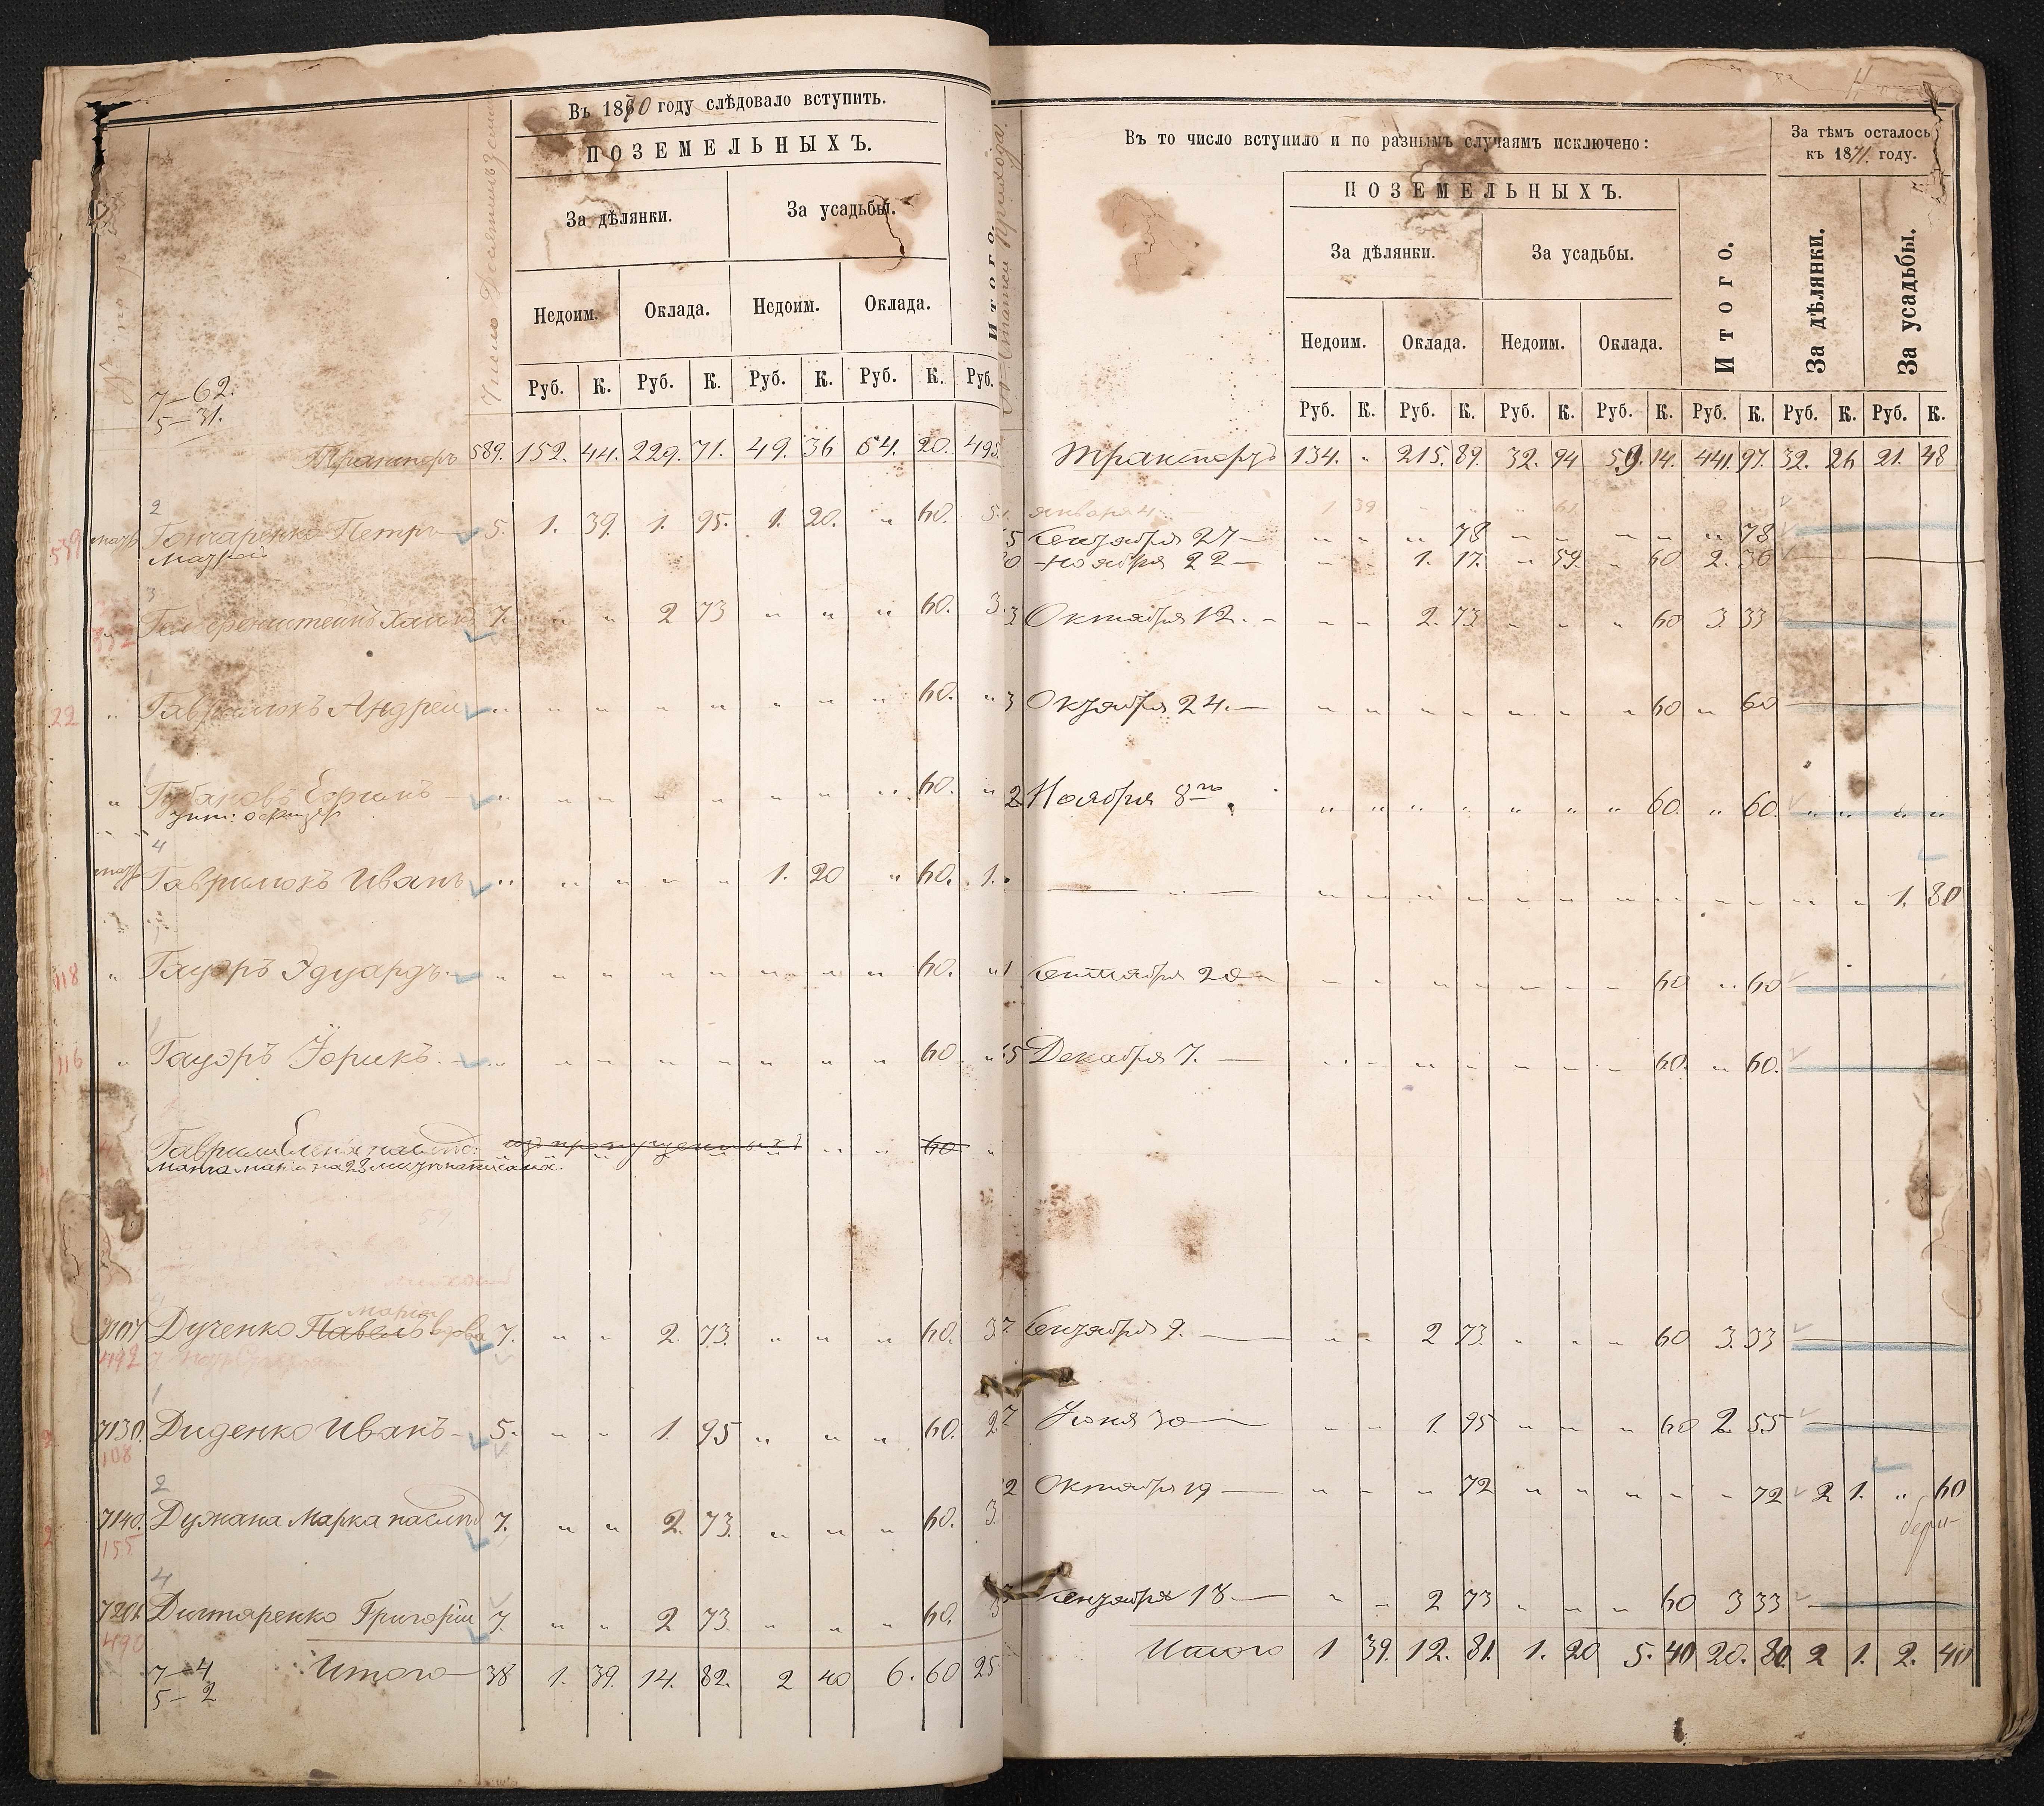 Въ 1870 году слѣдовало вступить.
ПОЗЕМЕЛЬНЫХЪ.
За дѣлянки. За усадьбы.
Число Десятинъ земли
Недоим. Оклада. Недоим. Оклада. Итого.
Руб. К. Руб. К. Руб. К. Руб. К. Руб.
7–62.
5–31.
Транспортъ 589. 152. 44. 229. 71. 49. 36 64. 20. 495
2
Гончаренко Петръ 5. 1. 39. 1. 95. 1. 20. " 60. 5.
539
3
7. " " 2 73 " " " 60. 3.
22 " Гаврилюкъ Андрей " " " " " " " " 60. "
" Губановъ " " " " " " " " 60. "
унт: офицеръ
4
Гаврилюкъ Иванъ " " " " " 1. 20 " 60. 1.
118 " Гауэръ Эдуардъ. " " " " " " " " 60. "
116 " Гауэръ Юрикъ. " " " " " " " " 60. "
60
Марія
7107 Дученко Павелъ вдова 7. " " 2. 73. " " " 60. 3
492
1
7130. Диденко Иванъ 5. " " 1. 95 " " " 60. 2
108
2
7140. Дужана Марка наслѣд 7. " " 2. 73. " " " 60. 3.
155
4
7201. Григорій 7. " " 2 73. " " " 60. 3
490
7–4 Итого 38 1. 39. 14. 82. 2 40 6. 60 25.
5–2
№ Статьи Прихода.
Въ то число вступило и по разнымъ случаямъ исключено:
За тѣмъ осталось
къ 1871 году.
ПОЗЕМЕЛЬНЫХЪ.
За дѣлянки. За усадьбы.
Недоим. Оклада. Недоим. Оклада. Итого. За дѣлянки. За усадьбы.
Руб. К. Руб. К. Руб. К. Руб. К. Руб. К. Руб. К. Руб. К.
Транспортъ 134. " 215. 89. 32. 94 59. 14. 441. 97. 32. 26 21. 48
Января 4. 1 39
Сентября 27 " " " 78 " " " " " 78
Ноября 22 " " 1. 17. " 59. " 60 2. 36
Октября 12. " " 2. 73 " " " 60 3. 33
Октября 24. " " " " " " " 60 " 60
Ноября 8го " " " " " " " 60. " 60. " " " "
" " " " " " " " " " " " " 1. 80
Сентября 20 " " " " " " " 60 " 60
Декабря 7. " " " " " " " 60. " 60.
Сентября 9. " " 2 73. " " " 60 3. 33
Іюня 30 " " 1. 95 " " " 60 2. 55
Октября 19 " " " 72 " " " " " 72 2 1. " 60
Сентября 18 " " 2 73 " " " 60 3 33
Итого 1 39. 12. 81. 1. 20 5. 40 20. 80. 2 1. 2. 40